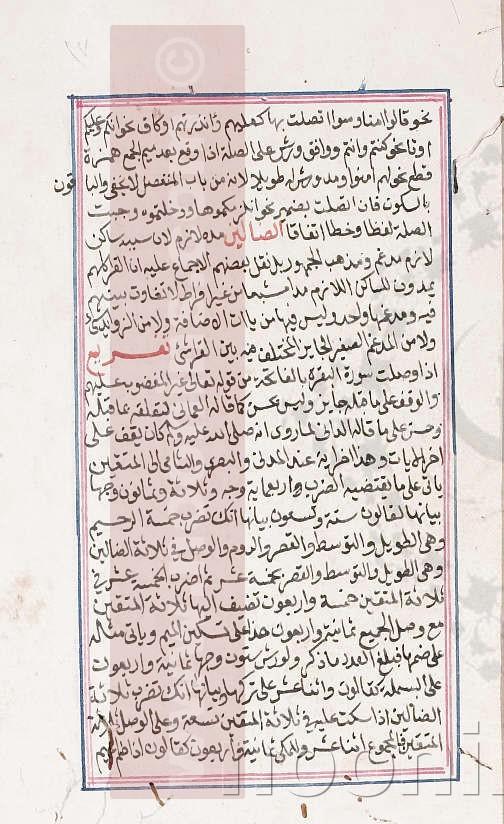 نحو قالوا امنا وسوا اتصلت بها كعليهم وانذرتهم او كاف نحو انكم وعليكم
او تا نحو كنتم وانتم ووافق ورش على الصلة اذا وقع بعد ميم الجمع همزة
قطع نحو لهم امنوا ومد ورش طويلا لانه من باب المنفصل لا يخفى والباقون
بالسكون فان اتصلت بضمير نحو انلزمكموها ودخلتموه وجبت
الصلة لفظا وخطا اتفاقا الضالين مده لازم لان سببه ساكن
لازم مدغم ومذهب الجمهور بل نقل بعضهم الاجماع عليه ان القراء كلهم
يمدون للساكن اللازم مدا مشبعا من غير افراط لا تفاوت بينهم
فيه ومدغمها واحد وليس فيها من يات الاضافة ولا من الزوايد شيء
ولا من المدغم الصغير الجايز المختلف فيه بين القراء شي تفريع
اذا وصلت سورة البقرة بالفاتحة من قوله تعالى غير المغضوب عليهم
والوقف على ما قبله جايز وليس بحسن كما قاله العماني لتعلقه بما قبله
وحسن على ما قاله الداني لما روي انه صلى الله عليه وسلم كان يقف على
اخر الايات وهذا اخر اية عند المدني والبصري والشامي الى المتقين
ياتي على ما يقتضيه الضرب اربعماية وجه وثلاثة وثمانون وجها
بيانها لقالون ستة وتسعون بيانها انك تضرب خمسة الرحيم
وهي الطويل والتوسط والقصر والروم والوصل في ثلاثة الضالين
وهي الطويل والتوسط والقصر بخمسة عشر ثم اضرب الخمسة عشر في
ثلاثة المتقين خمسة واربعون تضيف اليها ثلاثة المتقين
مع وصل الجميع ثمانية واربعون هذا على تسكين الميم وياتي مثله
على ضمها فبلغ العدد ما ذكر ولورش ستون وجها ثمانية واربعون
على البسملة كقالون واثنا عشر على تركها وبيانها انك تضرب ثلاثة
الضالين اذا سكت عليه في ثلاثة المتقين تسعة وعلى الوصل ثلاثة
المتقين فالمجموع اثنا عشر وللمكي ثمانية واربعون كقالون اذا ضم الميم